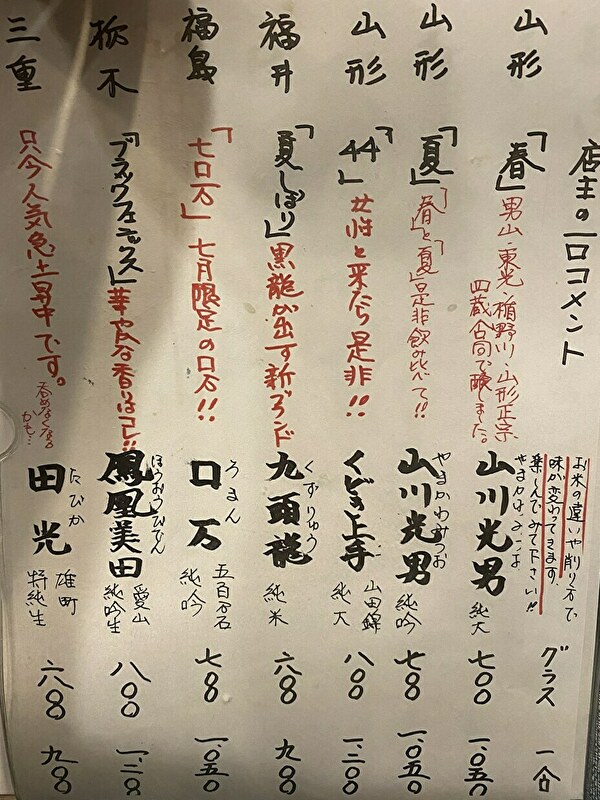 店主の一口コメント
お米の違いや削り方で
味が変わってきます。
楽しんでみて下さい!!
グラス
一合
山形
「春」
男山・東光・楯野川・山形正宗
四蔵合同で醸しました。
やまかわみつお
山川光男
純大
七〇〇
一、〇五〇
山形
「夏」
「春」と「夏」是非飲み比べて!!
やまかわみつお
山川光男
純吟
七〇〇
一、〇五〇
山形
「44」
女性と来たら是非!!
くどき上手
山田錦
純大
八〇〇
一、二〇〇
福井
「夏しぼり」
黒龍が出す新ブランド
くずりゅう
九頭龍
純米
六〇〇
九〇〇
福島
「七ロ万」
七月限定のロ万!!
ろまん
ロ万
五百万石
純吟
七〇〇
一、〇五〇
栃木
「ブラックフェニックス」
華やかな香りはコレ!!
ほうおうびでん
鳳凰美田
愛山
純吟生
八〇〇
一、二〇〇
三重
只今人気急上昇中です。
呑めなくなる
かも…
たびか
田光
雄町
特純生
六〇〇
九〇〇